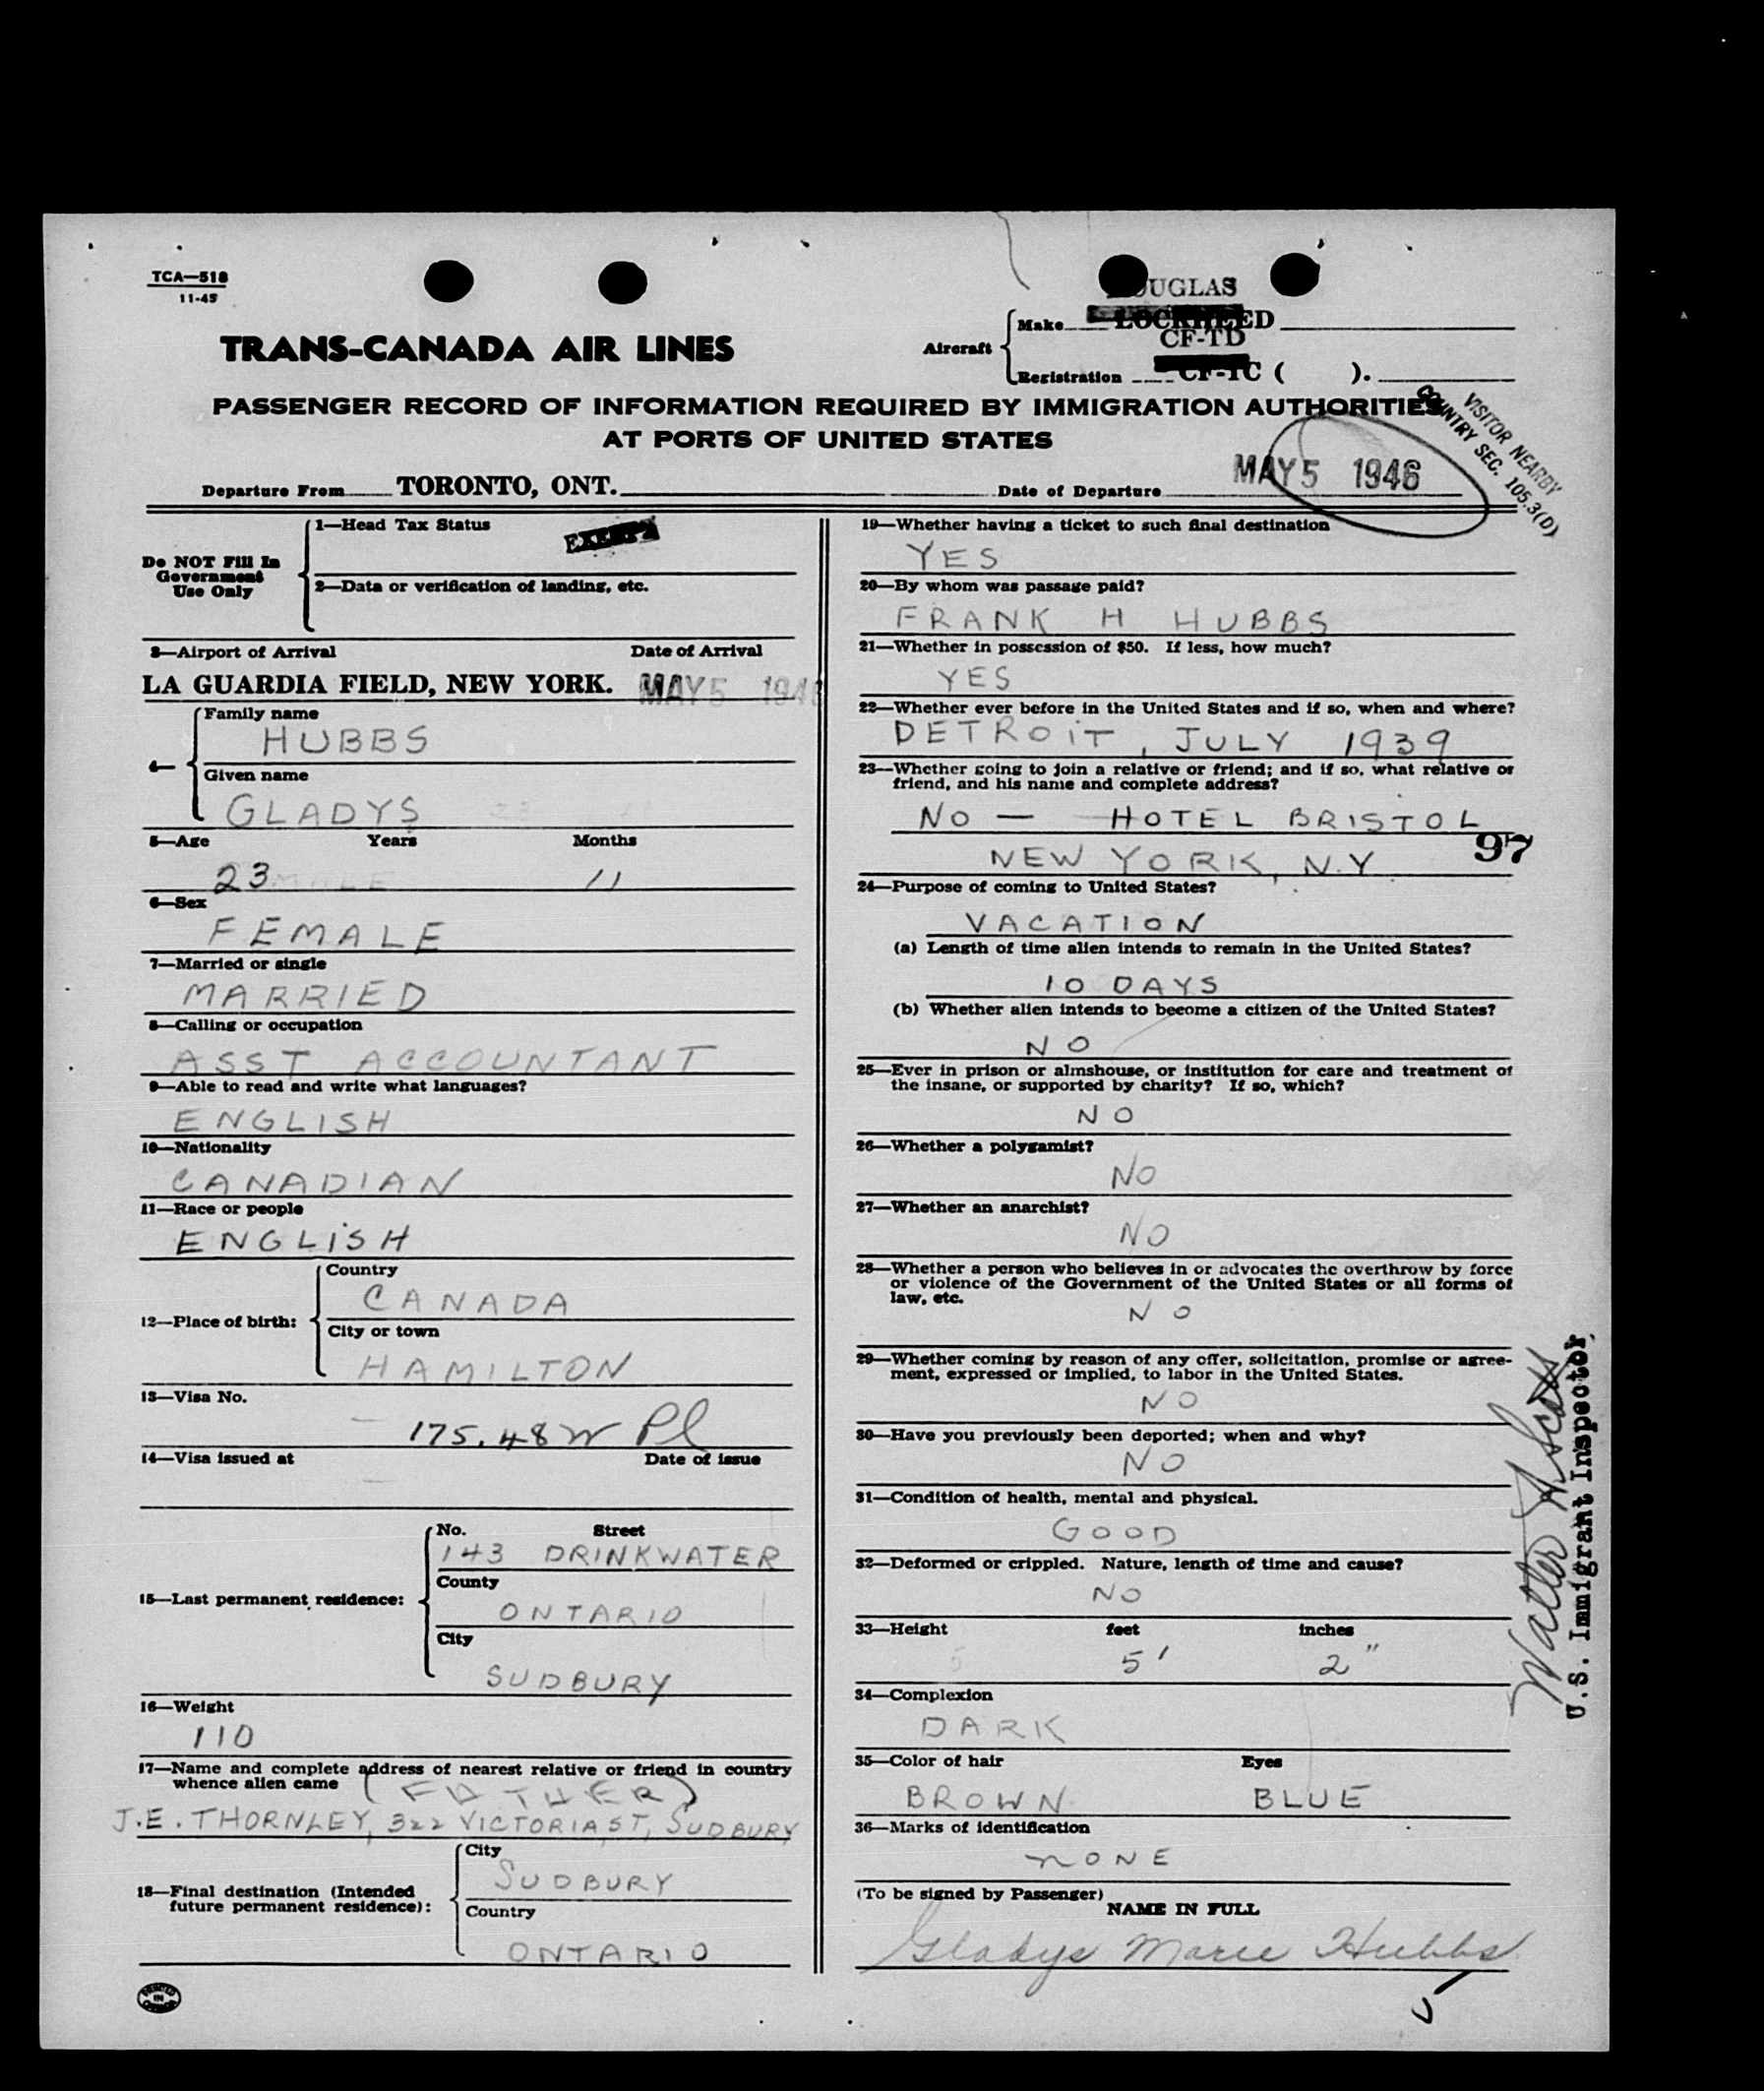 TCA—518
11-45
DOUGLAS
Make LOCKHEED
CF-TD
Aircraft
Registration CF-TC ( ).
TRANS-CANADA AIR LINES
PASSENGER RECORD OF INFORMATION REQUIRED BY IMMIGRATION AUTHORITIES
AT PORTS OF UNITED STATES
VISITOR NEARBY
COUNTRY SEC. 105.3(D)
Departure From TORONTO, ONT. Date of Departure MAY 5 1946
Do NOT Fill In
Government
Use Only
1—Head Tax Status EXEMPT
2—Data or verification of landing, etc.
3—Airport of Arrival Date of Arrival
LA GUARDIA FIELD, NEW YORK. MAY 5 1946
4—
Family name
HUBBS
Given name
GLADYS
5—Age Years Months
23 11
6—Sex
FEMALE
7—Married or single
MARRIED
8—Calling or occupation
ASST ACCOUNTANT
9—Able to read and write what languages?
ENGLISH
10—Nationality
CANADIAN
11—Race or people
ENGLISH
12—Place of birth:
Country
CANADA
City or town
HAMILTON
13—Visa No.
175.48
14—Visa issued at Date of issue
15—Last permanent residence:
No. Street
143 DRINKWATER
County
ONTARIO
City
SUDBURY
16—Weight
110
17—Name and complete address of nearest relative or friend in country
whence alien came (FATHER)
J.E. THORNLEY, 322 VICTORIA ST, SUDBURY
18—Final destination (Intended
future permanent residence):
City
SUDBURY
Country
ONTARIO
PRINTED
IN
CANADA
19—Whether having a ticket to such final destination
YES
20—By whom was passage paid?
FRANK H HUBBS
21—Whether in possession of $50. If less, how much?
YES
22—Whether ever before in the United States and if so, when and where?
DETROIT, JULY 1939
23—Whether going to join a relative or friend; and if so, what relative or
friend, and his name and complete address?
NO — HOTEL BRISTOL
97
NEW YORK, N.Y.
24—Purpose of coming to United States?
VACATION
(a) Length of time alien intends to remain in the United States?
10 DAYS
(b) Whether alien intends to become a citizen of the United States?
NO
25—Ever in prison or almshouse, or institution for care and treatment of
the insane, or supported by charity? If so, which?
NO
26—Whether a polygamist?
NO
27—Whether an anarchist?
NO
28—Whether a person who believes in or advocates the overthrow by force
or violence of the Government of the United States or all forms of
law, etc.
NO
29—Whether coming by reason of any offer, solicitation, promise or agree-
ment, expressed or implied, to labor in the United States.
NO
30—Have you previously been deported; when and why?
NO
31—Condition of health, mental and physical.
GOOD
32—Deformed or crippled. Nature, length of time and cause?
NO
33—Height feet inches
5' 2"
34—Complexion
DARK
35—Color of hair Eyes
BROWN BLUE
36—Marks of identification
NONE
(To be signed by Passenger)
NAME IN FULL
Gladys Marie Hubbs
Walter A
U.S. Immigrant Inspector